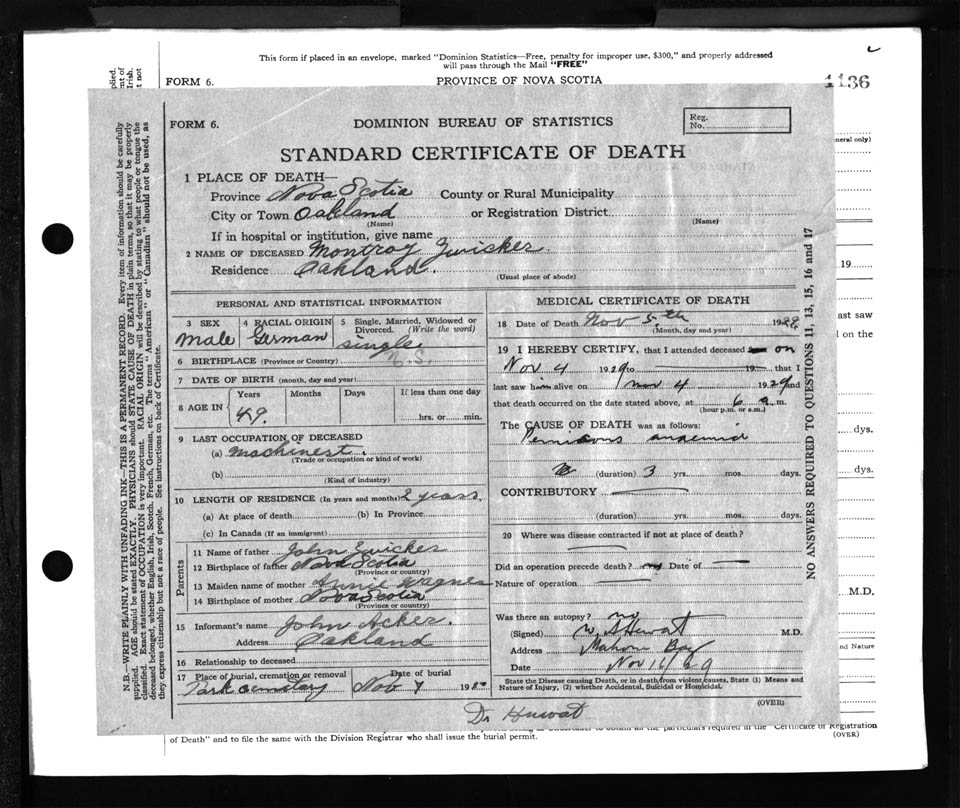 This form if placed in an envelope, marked "Dominion Statistics—Free, penalty for improper use, $300," and properly addressed
will pass through the Mail "FREE"
FORM 6. PROVINCE OF NOVA SCOTIA
1136
FORM 6. DOMINION BUREAU OF STATISTICS
Reg.
No.
STANDARD CERTIFICATE OF DEATH
1 PLACE OF DEATH—
Province Nova Scotia County or Rural Municipality
City or Town Oakland or Registration District
(Name) (Name)
If in hospital or institution, give name
2 NAME OF DECEASED Montroy Zwicker
Residence Oakland.
(Usual place of abode)
PERSONAL AND STATISTICAL INFORMATION
3 SEX 4 RACIAL ORIGIN 5 Single, Married, Widowed or
Divorced. (Write the word)
Male German single
6 BIRTHPLACE (Province or Country) N.S.
7 DATE OF BIRTH (month, day and year)
8 AGE IN Years Months Days If less than one day
49 hrs. or min.
9 LAST OCCUPATION OF DECEASED
(a) Machinest.
(Trade or occupation or kind of work)
(b)
(Kind of industry)
10 LENGTH OF RESIDENCE (In years and months) 2 years.
(a) At place of death (b) In Province
(c) In Canada (If an immigrant)
Parents
11 Name of father John Zwicker
12 Birthplace of father Nova Scotia
(Province or country)
13 Maiden name of mother Annie Wagner
14 Birthplace of mother Nova Scotia
(Province or country)
15 Informant's name John Acker.
Address Oakland
16 Relationship to deceased
17 Place of burial, cremation or removal Date of burial
Park cemetary Nov 7 19
MEDICAL CERTIFICATE OF DEATH
18 Date of Death Nov 5th 1929
(Month, day and year)
19 I HEREBY CERTIFY, that I attended deceased on
Nov 4 1929 to 19 that I
last saw him alive on Nov 4 1929 and
that death occurred on the date stated above, at 6 a.m.
(hour p.m. or a.m.)
The CAUSE OF DEATH was as follows:
Pernicious anaemia
(duration) 3 yrs. mos. days.
CONTRIBUTORY
(duration) yrs. mos. days.
20 Where was disease contracted if not at place of death?
Did an operation precede death? no Date of
Nature of operation
Was there an autopsy? no
(Signed) W. A Hewat M.D.
Address Mahone Bay
Date Nov 16/29
State the Disease causing Death, or in death from violent causes, State (1) Means and
Nature of Injury, (2) whether Accidental, Suicidal or Homicidal.
(OVER)
Dr Huwat
NO ANSWERS REQUIRED TO QUESTIONS 11, 13, 15, 16 and 17
N.B.—WRITE PLAINLY WITH UNFADING INK—THIS IS A PERMANENT RECORD. Every item of information should be carefully
supplied. AGE should be stated EXACTLY. PHYSICIANS should STATE CAUSE OF DEATH in plain terms, so that it may be properly
classified. Exact statement of OCCUPATION is very important. RACIAL ORIGIN will be described by stating to what people or tongue the
deceased belonged, whether English, Irish, Scotch, French, German, etc. The terms "American" or "Canadian" should not be used, as
they express citizenship but not a race of people. See instructions on back of Certificate.
neral only)
19
ast saw
d on the
dys.
dys.
M.D.
nd Nature
"Certificate of Registration
of Death" and to file the same with the Division Registrar who shall issue the burial permit.
(OVER)